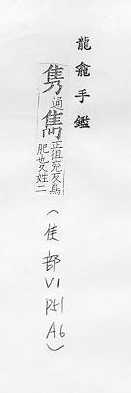 龍龕手鑑
隽通雋正徂兖反鳥
肥也又姓二
(隹部V1
P51
A6)